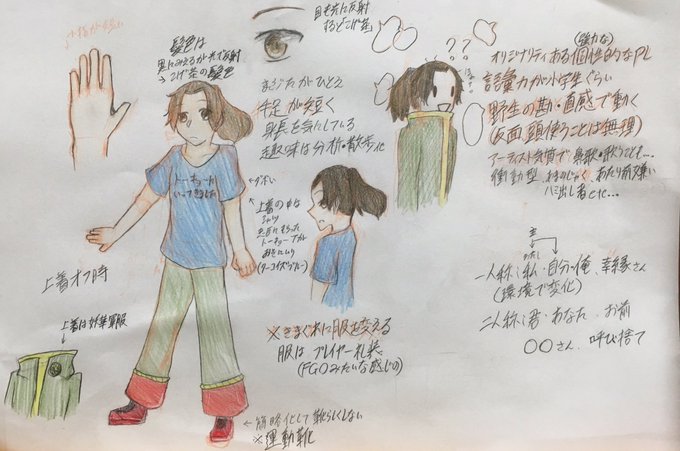 小指が短い
髪色は
黒にみえるが光で反射
→こげ茶の髪色
目も光に反射
するとこげ茶
まぶたがひとえ
手足が短く
身長を気にしている
趣味は分析・散歩
トーキョーに
いってきました
←ダボい
↑上着の中は
シャツ
上着オフ時
上着は
※きまぐれに服を変える
服はプレイヤー礼装
(FGOみたいな感じの)
←簡略化して靴らしくしない
※運動靴
??
(強力な)
オリジナリティある個性的なPL
語彙力が小学生ぐらい
野生の勘・直感で動く
(仮面、頭使うことは無理)
アーティスト気質で鼻歌・歌うことも…
衝動型
あたり前嫌い
ハミ出し者とか…
主
一人称:私・自分・俺、幸縁さん
(環境で変化)
二人称:君・あなた・お前
〇〇さん、呼び捨て